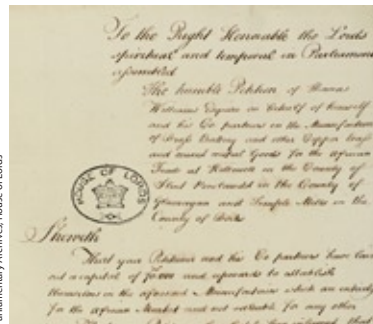 To the Right Honourable the Lords
spiritual and temporal in Parliament
assembled
The humble Petition of Thomas
Williams Esquire on behalf of himself
and his Co partners in the Manufacture
of Brass Battery and other Copper
and mixed metal Goods for the African
Trade at Holywell in the County of
Flint Penclawdd in the County of
Glamorgan and Temple Mills in the
County of Berks
HOUSE OF LORDS
Sheweth
That your Petitioner and his Co partners have
out a capital of 70,000 and upwards to establish
themselves in the aforesaid Manufactories which are entirely
for the African Market and not saleable for any other
Parliamentary Archives, House of Lords